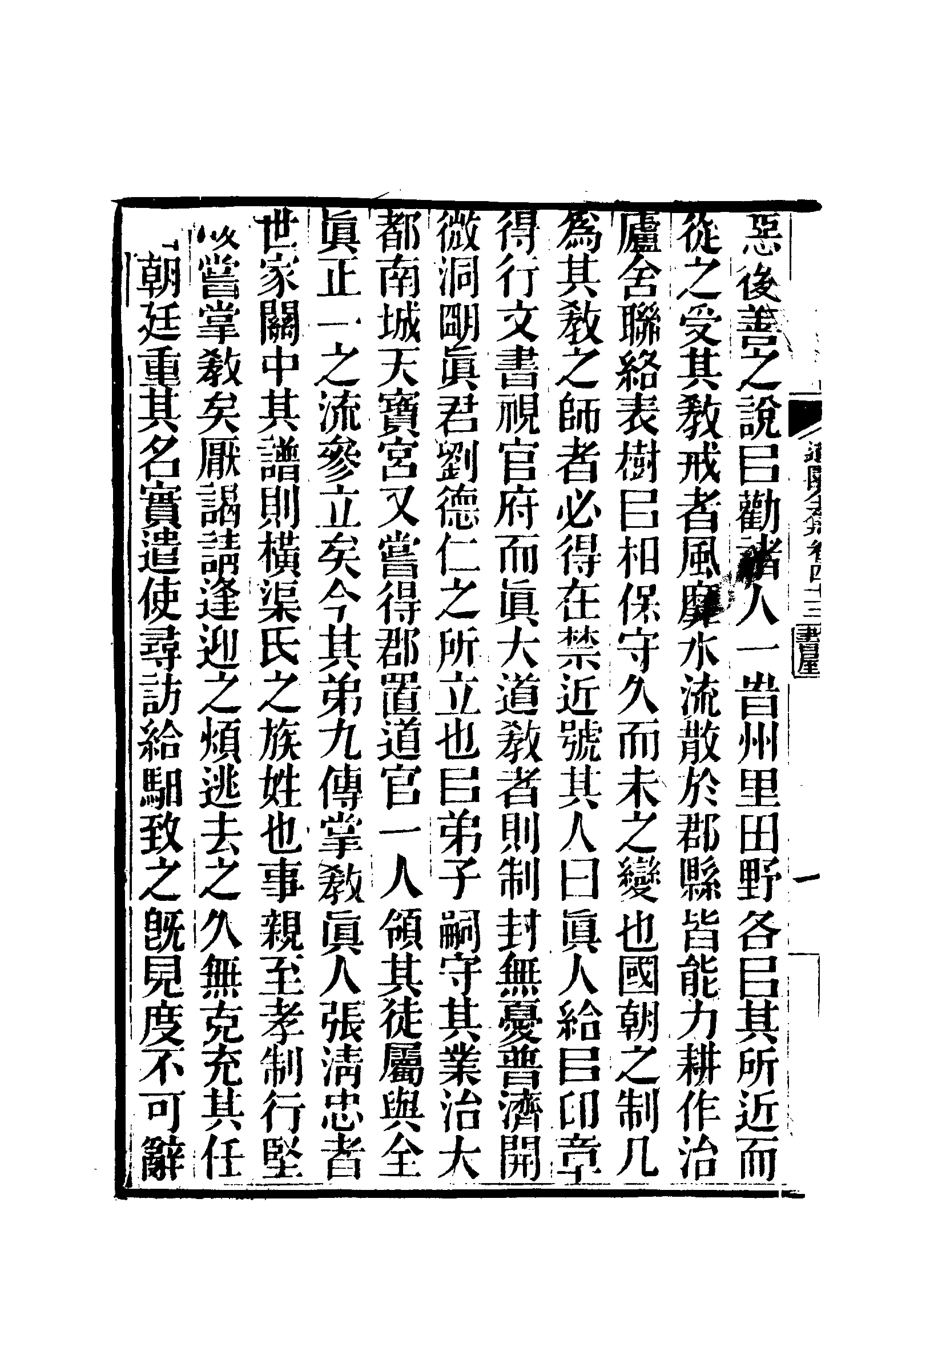 惡後善之說㠯勸諸人一皆州里田野各㠯其所近而
從之受其敎戒者風靡水流散於郡縣皆能力耕作治
廬舍聯絡表樹㠯相保守久而未之變也國朝之制凡
爲其敎之師者必得在禁近號其人曰眞人給㠯印章
得行文書視官府而眞大道敎者則制封無憂普濟開
微洞明眞君劉德仁之所立也㠯弟子嗣守其業治大
都南城天寶宮又嘗得郡置道官一人領其徒屬與全
眞正一之流參立矣今其弟九傳掌敎眞人張淸忠者
世家關中其譜則橫渠氏之族姓也事親至孝制行堅
峻嘗掌敎矣厭謁請逢迎之煩逃去之久無克充其任
朝廷重其名實遣使尋訪給馹致之旣見度不可辭
道園全集卷四十三 書屋